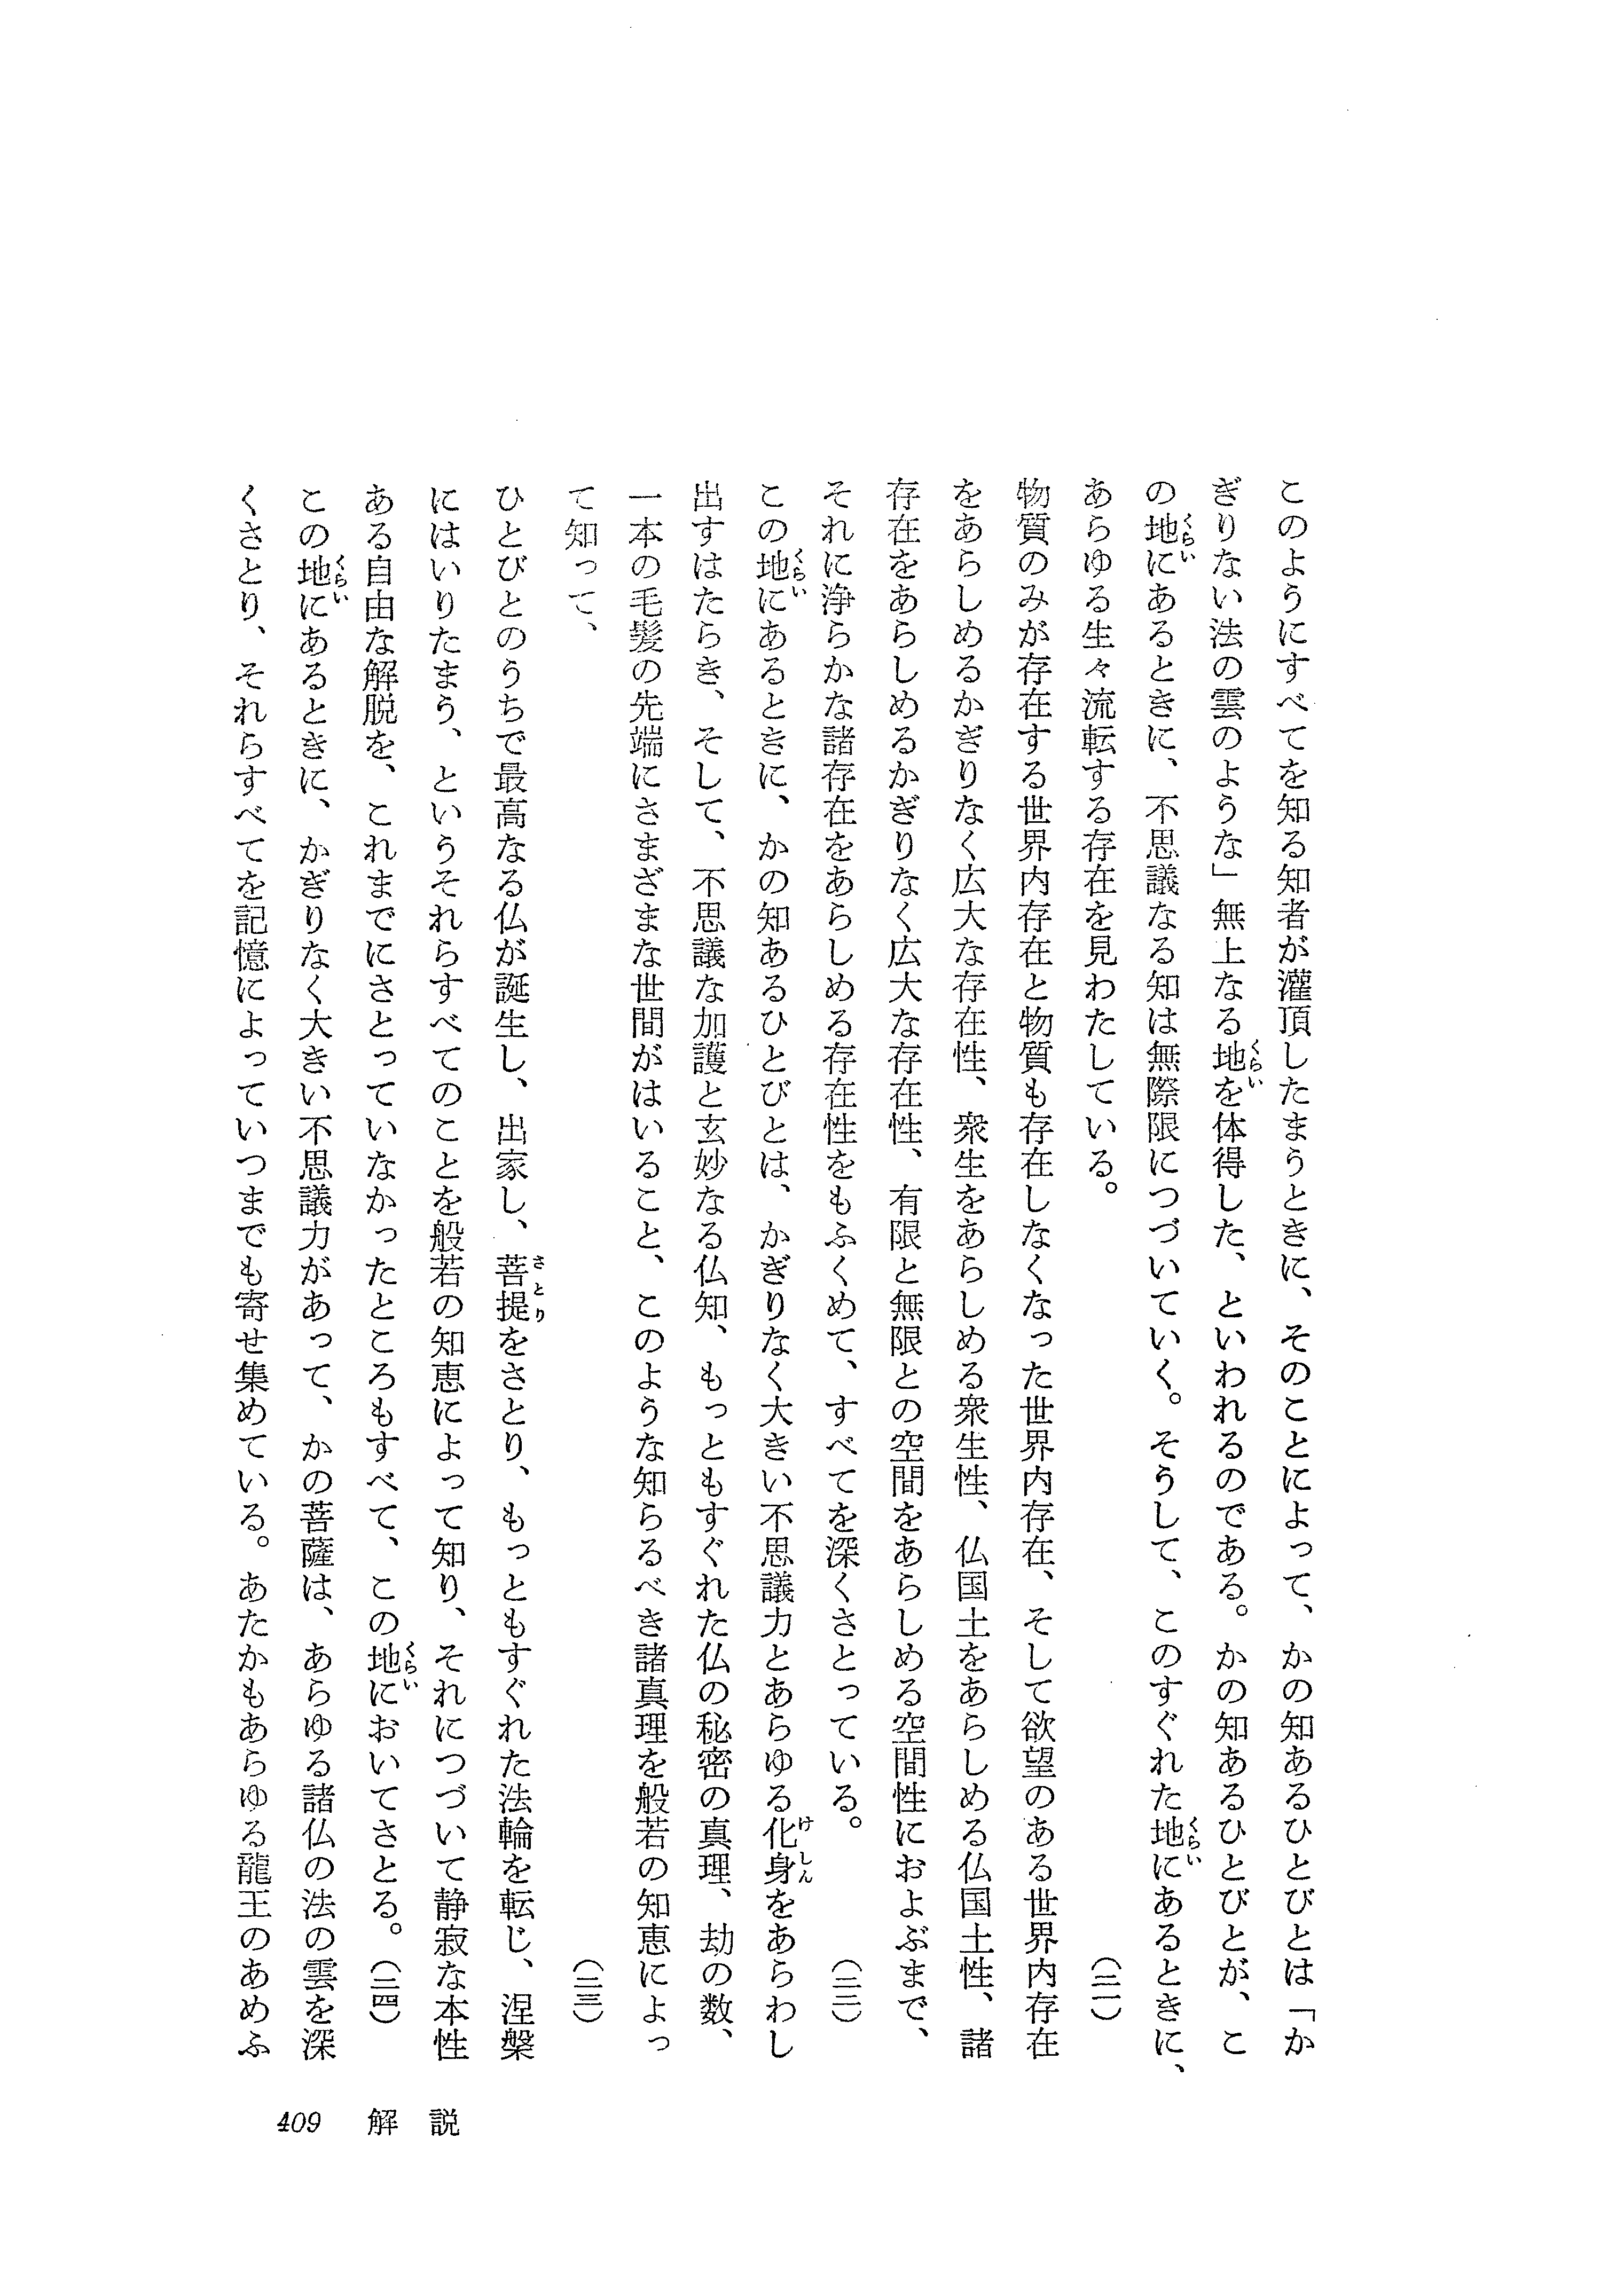 このようにすべてを知る知者が灌頂したまうときに、そのことによって、かの知あるひとびとは「か
ぎりない法の雲のような」無上なる地を体得した、といわれるのである。かの知あるひとびとが、こ
の地にあるときに、不思議なる知は無際限につづいていく。そうして、このすぐれた地にあるときに、
あらゆる生々流転する存在を見わたしている。（三一）
物質のみが存在する世界内存在と物質も存在しなくなった世界内存在、そして欲望のある世界内存在
をあらしめるかぎりなく広大な存在性、衆生をあらしめる衆生性、仏国土をあらしめる仏国土性、諸
存在をあらしめるかぎりなく広大な存在性、有限と無限との空間をあらしめる空間性におよぶまで、
それに浄らかな諸存在をあらしめる存在性をもふくめて、すべてを深くさとっている。（三二）
この地にあるときに、かの知あるひとびとは、かぎりなく大きい不思議力とあらゆる化身をあらわし
出すはたらき、そして、不思議な加護と玄妙なる仏知、もっともすぐれた仏の秘密の真理、劫の数、
一本の毛髪の先端にさまざまな世間がはいること、このような知らるべき諸真理を般若の知恵によっ
て知って、（三三）
ひとびとのうちで最高なる仏が誕生し、出家し、菩提をさとり、もっともすぐれた法輪を転じ、涅槃
にはいりたまう、というそれらすべてのことを般若の知恵によって知り、それにつづいて静寂な本性
ある自由な解脱を、これまでにさとっていなかったところもすべて、この地においてさとる。（三四）
この地にあるときに、かぎりなく大きい不思議力があって、かの菩薩は、あらゆる諸仏の法の雲を深
くさとり、それらすべてを記憶によっていつまでも寄せ集めている。あたかもあらゆる龍王のあめふ
409 解説